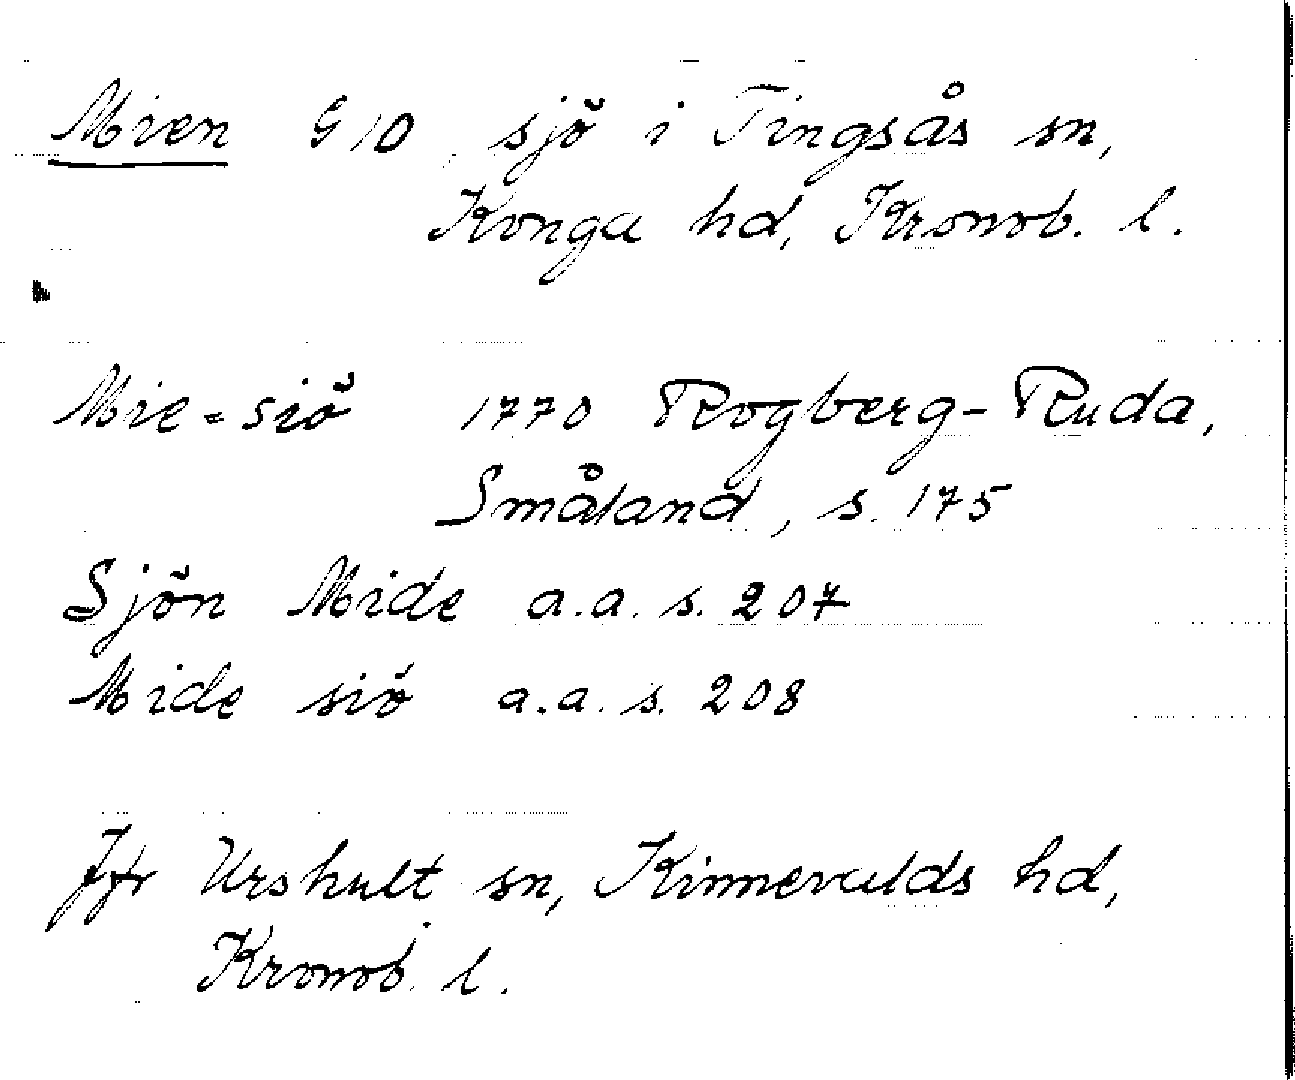 Mien G 10 sjö i Tingsås sn,
Konga hd, Kronob. l.
Mie=siö 1770 Rogberg-Ruda,
Småland, s. 175
Sjön Mide a.a. s. 207
Mide siö a.a. s. 208
Jfr Urshult sn, Kinnevalds hd,
Kronob. l.